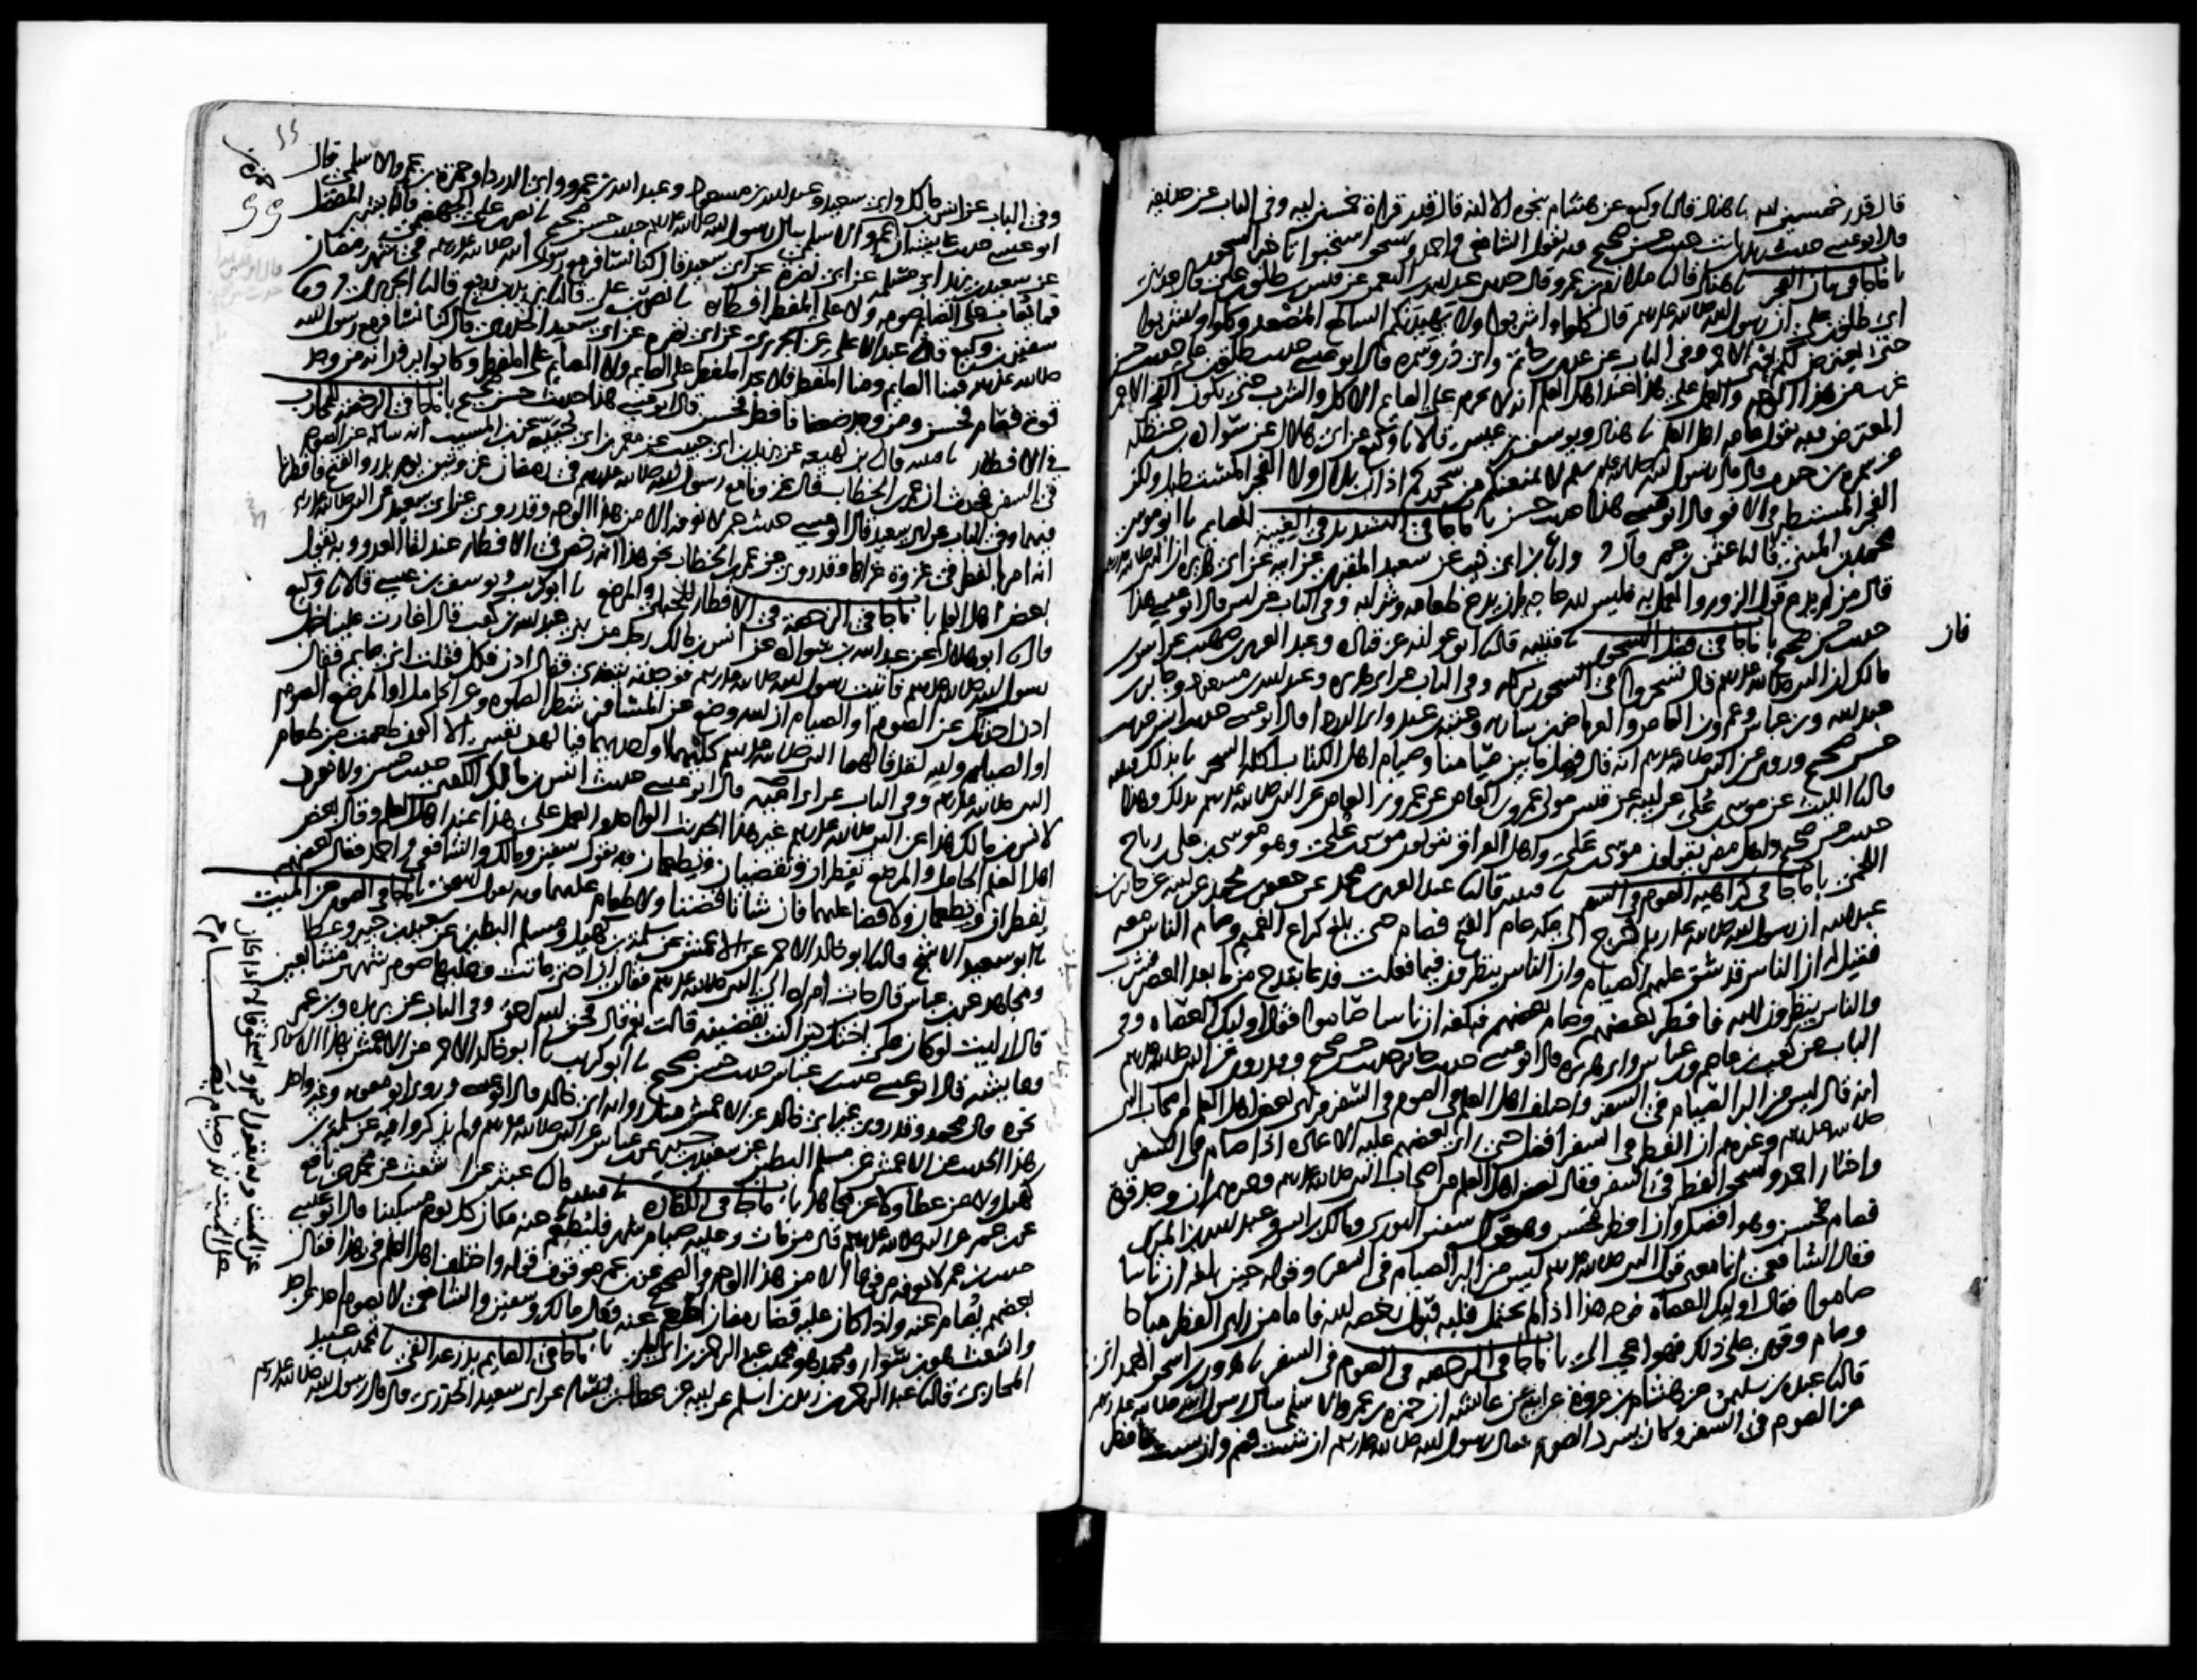 قال قدر خمسين ايه نا هناد قال نا وكيع عن هشام بنحوه الا انه قال قدر قراة خمسين ايه وفي الباب عن حذيفه
قال ابو عيسى حديث زيد بن ثابت حديث حسن صحيح وبه يقول الشافعي واحمد واسحق استحبوا تاخير السحور
باب ما جا في بيان الفجر نا هناد قال نا ملازم بن عمرو قال حدثني عبد الله بن النعمن عن قيس بن طلق بن علي قال حدثني
ابي طلق بن علي ان رسول الله صلى الله عليه وسلم قال كلوا واشربوا ولا يهيدنكم الساطع المصعد وكلوا واشربوا
حتى يعترض لكم الاحمر وفي الباب عن عدي بن حاتم وابي ذر وسمره قال ابو عيسى حديث طلق بن علي حديث حسن
غريب من هذا الوجه والعمل على هذا عند اهل العلم انه لا يحرم على الصايم الاكل والشرب حتى يكون الفجر الاحمر
المعترض وبه يقول عامه اهل العلم نا هناد ويوسف بن عيسى قالا نا وكيع عن ابي هلال عن سواده بن حنظله
عن سمره بن جندب قال قال رسول الله صلى الله عليه وسلم لا يمنعنكم من سحوركم اذان بلال ولا الفجر المستطيل ولكن
الفجر المستطير في الافق قال ابو عيسى هذا حديث حسن باب ما جا في التشديد في الغيبه للصايم نا ابو موسى
محمد بن المثنى قال نا عثمن بن عمر قال وانا ابن ابي ذيب عن سعيد المقبري عن ابيه عن ابي هريره ان النبي صلى الله عليه وسلم
قال من لم يدع قول الزور والعمل به فليس لله حاجه بان يدع طعامه وشرابه وفي الباب عن انس قال ابو عيسى هذا
حديث حسن صحيح باب ما جا في فضل السحور نا قتيبه قال نا ابو عوانه عن قتاده وعبد العزيز بن صهيب عن انس بن
مالك ان النبي صلى الله عليه وسلم قال تسحروا فان في السحور بركه وفي الباب عن ابي هريره وعبد الله بن مسعود وجابر بن
عبد الله وبن عباس وعمرو بن العاص والعرباض بن ساريه وعتبه بن عبد وابي الدردا قال ابو عيسى حديث انس حديث
حسن صحيح وروي عن النبي صلى الله عليه وسلم انه قال فصل ما بين صيامنا وصيام اهل الكتاب اكله السحر نا بذلك قتيبه
قال نا الليث عن موسى بن علي عن ابيه عن قيس مولى عمرو بن العاص عن عمرو بن العاص عن النبي صلى الله عليه وسلم بذلك وهذا
حديث حسن صحيح واهل مصر يقولون موسى بن علي واهل العراق يقولون موسى بن علي وهو موسى بن علي بن رباح
اللخمي باب ما جا في كراهيه الصوم في السفر نا قتيبه قال نا عبد العزيز بن محمد عن جعفر بن محمد عن ابيه عن جابر بن
عبد الله ان رسول الله صلى الله عليه وسلم خرج الى مكه عام الفتح فصام حتى بلغ كراع الغميم وصام الناس معه
فقيل له ان الناس قد شق عليهم الصيام وان الناس ينظرون فيما فعلت فدعا بقدح من ما بعد العصر فشرب
والناس ينظرون اليه فافطر بعضهم وصام بعضهم فبلغه ان ناسا صاموا فقال اوليك العصاه وفي
الباب عن كعب بن عاصم وبن عباس وابي هريره قال ابو عيسى حديث جابر حديث حسن صحيح وقد روي عن النبي صلى الله عليه وسلم
انه قال ليس من البر الصيام في السفر واختلف اهل العلم في الصوم في السفر فراى بعض اهل العلم من اصحاب النبي
صلى الله عليه وسلم وغيرهم ان الفطر في السفر افضل حتى راى بعضهم عليه الاعاده اذا صام في السفر
واختار احمد واسحق الفطر في السفر وقال بعض اهل العلم من اصحاب النبي صلى الله عليه وسلم وغيرهم ان وجد قوة
فصام فحسن وهو افضل وان افطر فحسن وهو قول سفين الثوري ومالك بن انس وعبد الله بن المبارك
فقال الشافعي انما معنى قول النبي صلى الله عليه وسلم ليس من البر الصيام في السفر وقوله حين بلغه ان ناسا
صاموا فقال اوليك العصاه فوجه هذا اذا لم يحتمل قلبه قبول رخصه الله فاما من راى الفطر مباحا
وصام وقوي على ذلك فهو اعجب الي باب ما جا في الرخصه في الصوم في السفر نا هرون بن اسحق الهمداني
قال نا عبده بن سليمن عن هشام بن عروة عن ابيه عن عائشه ان حمزه بن عمرو الاسلمي سال رسول الله صلى الله عليه وسلم
عن الصوم في السفر وكان يسرد الصوم فقال رسول الله صلى الله عليه وسلم ان شئت فصم وان شئت فافطر
فان
وفي الباب عن انس بن مالك وابي سعيد وعبد الله بن مسعود وعبد الله بن عمرو وابي الدردا وحمزة بن عمرو الاسلمي قال
ابو عيسى حديث عايشه ان حمزة بن عمرو الاسلمي سال رسول الله صلى الله عليه وسلم حديث حسن صحيح نا نصر بن علي الجهضمي قال نا بشر بن المفضل
عن سعيد بن يزيد ابي مسلمه عن ابي نضرة عن ابي سعيد قال كنا نسافر مع رسول الله صلى الله عليه وسلم في شهر رمضان
فما يعاب على الصايم صومه ولا على المفطر افطاره نا نصر بن علي قال نا يزيد بن زريع قال نا الجريري ونا
سفين بن وكيع قال نا عبد الاعلى عن الجريري عن ابي نضرة عن ابي سعيد الخدري قال كنا نسافر مع رسول الله
صلى الله عليه وسلم فمنا الصايم ومنا المفطر فلا يجد المفطر على الصايم ولا الصايم على المفطر وكانوا يرون انه من وجد
قوة فصام فحسن ومن وجد ضعفا فافطر فحسن قال ابو عيسى هذا حديث حسن صحيح باب ما جا في الرخصه للمحارب
في الافطار نا قتيبه قال نا بن لهيعه عن يزيد بن ابي حبيب عن معمر بن ابي حييه عن بن المسيب انه ساله عن الصوم
في السفر فحدث ان عمر بن الخطاب قال غزونا مع رسول الله صلى الله عليه وسلم في رمضان غزوتين يوم بدر والفتح فافطرنا
فيهما وفي الباب عن ابي سعيد قال ابو عيسى حديث عمر لا نعرفه الا من هذا الوجه وقد روي عن ابي سعيد عن النبي صلى الله عليه وسلم
انه امر بالفطر في غزوة غزاها وقد روي عن عمر بن الخطاب نحو هذا انه رخص في الافطار عند لقا العدو وبه يقول
بعض اهل العلم باب ما جا في الرخصة في الافطار للحبلى والمرضع نا ابو كريب ويوسف بن عيسى قالا نا وكيع
قال نا ابو هلال عن عبد الله بن سواده عن انس بن مالك رجل من بني عبد الله بن كعب قال اغارت علينا خيل
رسول الله صلى الله عليه وسلم فاتيت رسول الله صلى الله عليه وسلم فوجدته يتغدى فقال ادن فكل فقلت اني صايم فقال
ادن احدثك عن الصوم او الصيام ان الله وضع عن المسافر شطر الصلوة وعن الحامل او المرضع الصوم
او الصيام والله لقد قالهما النبي صلى الله عليه وسلم كلتيهما او احديهما فيا لهف نفسي الا اكون طعمت من طعام
النبي صلى الله عليه وسلم وفي الباب عن ابي اميه قال ابو عيسى حديث انس بن مالك الكعبي حديث حسن ولا نعرف
لانس بن مالك هذا عن النبي صلى الله عليه وسلم غير هذا الحديث الواحد والعمل على هذا عند اهل العلم وقال بعض
اهل العلم الحامل والمرضع يفطران ويقضيان ويطعمان وبه يقول سفين ومالك والشافعي واحمد وقال بعضهم
يفطران ويطعمان ولا قضا عليهما فان شاتا قضتا ولا طعام عليهما وبه يقول اسحق باب ما جا في الصوم عن الميت
نا ابو سعيد الاشج قال نا ابو خالد الاحمر عن الاعمش عن سلمه بن كهيل ومسلم البطين عن سعيد بن جبير وعطا
ومجاهد عن بن عباس قال جات امراه الى النبي صلى الله عليه وسلم فقال ان اختي ماتت وعليها صوم شهرين متتابعين
قال ارايت لو كان على اختك دين اكنت تقضينه قالت نعم قال فحق الله احق وفي الباب عن بريده وبن عمر
وعايشه قال ابو عيسى حديث بن عباس حديث حسن صحيح نا ابو كريب نا ابو خالد الاحمر عن الاعمش بهذا الاسناد
نحوه قال محمد وقد روى غير ابي خالد عن الاعمش مثل رواية ابي خالد قال ابو عيسى وروى ابو معويه وغير واحد
هذا الحديث عن الاعمش عن مسلم البطين عن سعيد بن جبير عن بن عباس عن النبي صلى الله عليه وسلم ولم يذكروا فيه عن سلمه بن
كهيل ولا عن عطا ولا عن مجاهد باب ما جا في الكفاره نا قتيبه قال نا عبثر عن اشعث عن محمد عن نافع
عن بن عمر عن النبي صلى الله عليه وسلم قال من مات وعليه صيام شهر فليطعم عنه مكان كل يوم مسكينا قال ابو عيسى
حديث بن عمر لا نعرفه مرفوعا الا من هذا الوجه والصحيح عن بن عمر موقوف قوله واختلف اهل العلم في هذا فقال
بعضهم يصام عنه واذا كان عليه قضا رمضان اطعم عنه وقال مالك وسفين والشافعي لا يصوم احد عن احد
واشعث هو بن سوار ومحمد هو محمد بن عبد الرحمن بن ابي ليلى باب ما جا في الصايم يذرعه القي نا محمد بن عبيد
المحاربي قال نا عبد الرحمن بن زيد بن اسلم عن ابيه عن عطا بن يسار عن ابي سعيد الخدري قال قال رسول الله صلى الله عليه وسلم
عن الميت وبه يقول احمد واسحق قالا اذا كان
على الميت نذر صيام يصام